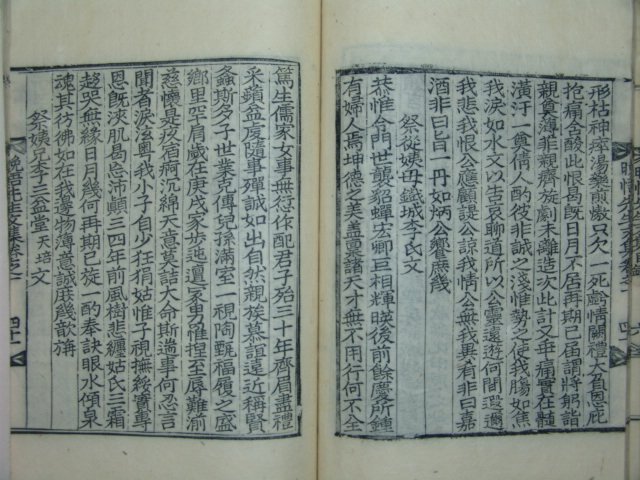 形枯神瘁湯藥前墩只欠一死虧情闕禮大負恩庇
抱痛含酸此恨曷旣日月不居再期已届謂將躬詣
親奠薄菲親癠旋劇未離造次此計又乖痛實在髓
潢汙一奠倩人酌彼非誠之淺惟勢之使我膓如焦
我淚如水文以告哀聊道所以公靈遐遊何間遐邇
我悲我恨公應顧諟公諒我情公無我異肴非曰嘉
酒非曰旨一丹如炳公饗庶幾
祭從姨母鐵城李氏文
恭惟令門世襲貂蟬宏卿巨相輝暎後前餘慶所鍾
有婦人焉坤德之美盖稟諸天才無不用行何不全
篤生儒家女事無衍作配君子殆三十年齊眉盡禮
采蘋益虔隨事殫誠如出自然親族慕誼遠近稱賢
螽斯多子世業克傳兒孫滿室一視陶甄福履之盛
鄕里罕肩歲在庚戌家步迍邅家男惟捏至辱難渝
慈懷是疚宿痾沉綿天意莫詰大命斯遄事何忍言
聞者淚泫粤我小子自少狂狷姑惟子視撫綏實專
恩旣浹肌曷忘沛顚三四年前風樹悲纏姑氏三霜
趍哭無緣日月幾何再期已旋一酌奉訣眼水傾泉
魂其彷彿如在我邊物薄意誠庶幾歆旃
祭姨兄李三公堂天培文